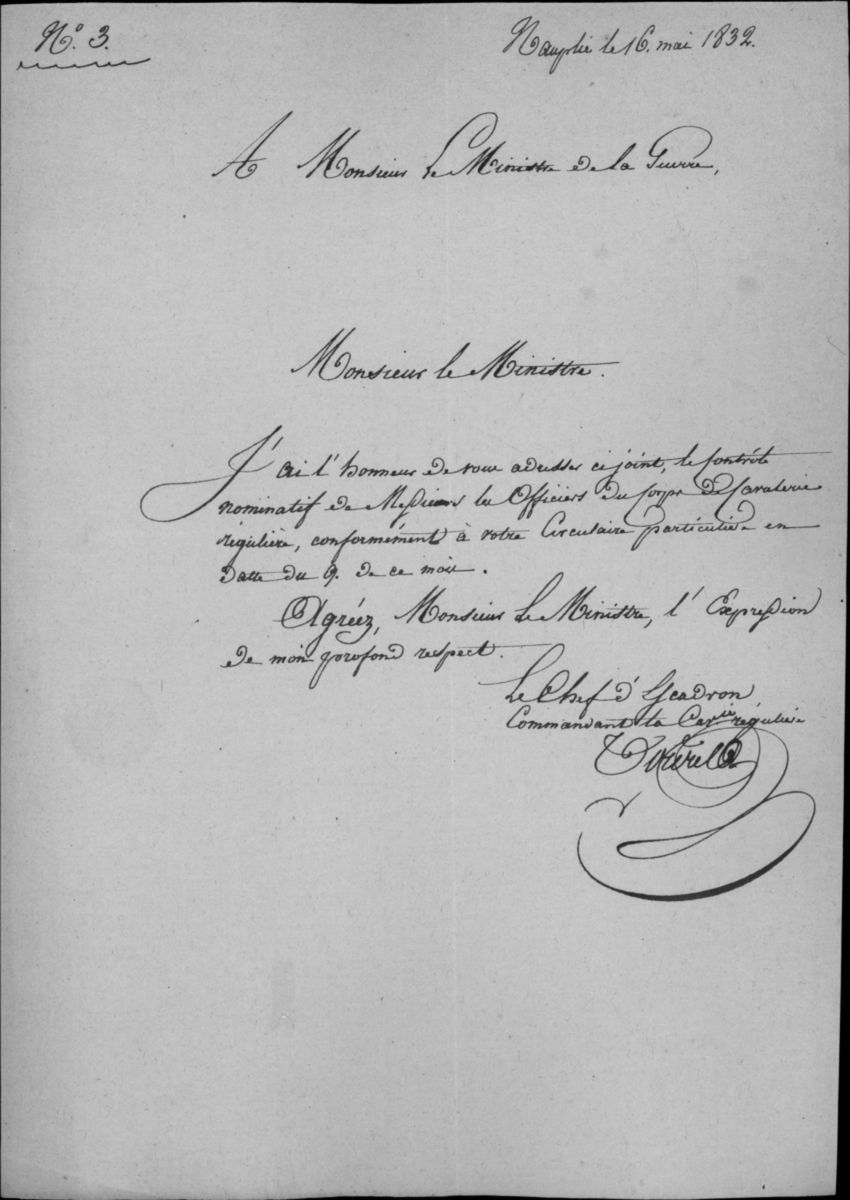 N.° 3.
Nauplie le 16. mai 1832.
A Monsieur Le Ministre de la Guerre,
Monsieur le Ministre.
J'ai l'honneur de vous adresser ci joint, le Contrôle
nominatif de Messieurs les Officiers du Corps de Cavalerie
régulière, conformément à votre Circulaire particulière en
date du 9. de ce mois.
Agréez, Monsieur Le Ministre, l'Expression
de mon profond respect.
Le Chef d'Escadron
Commandant la Cav.ie régulière